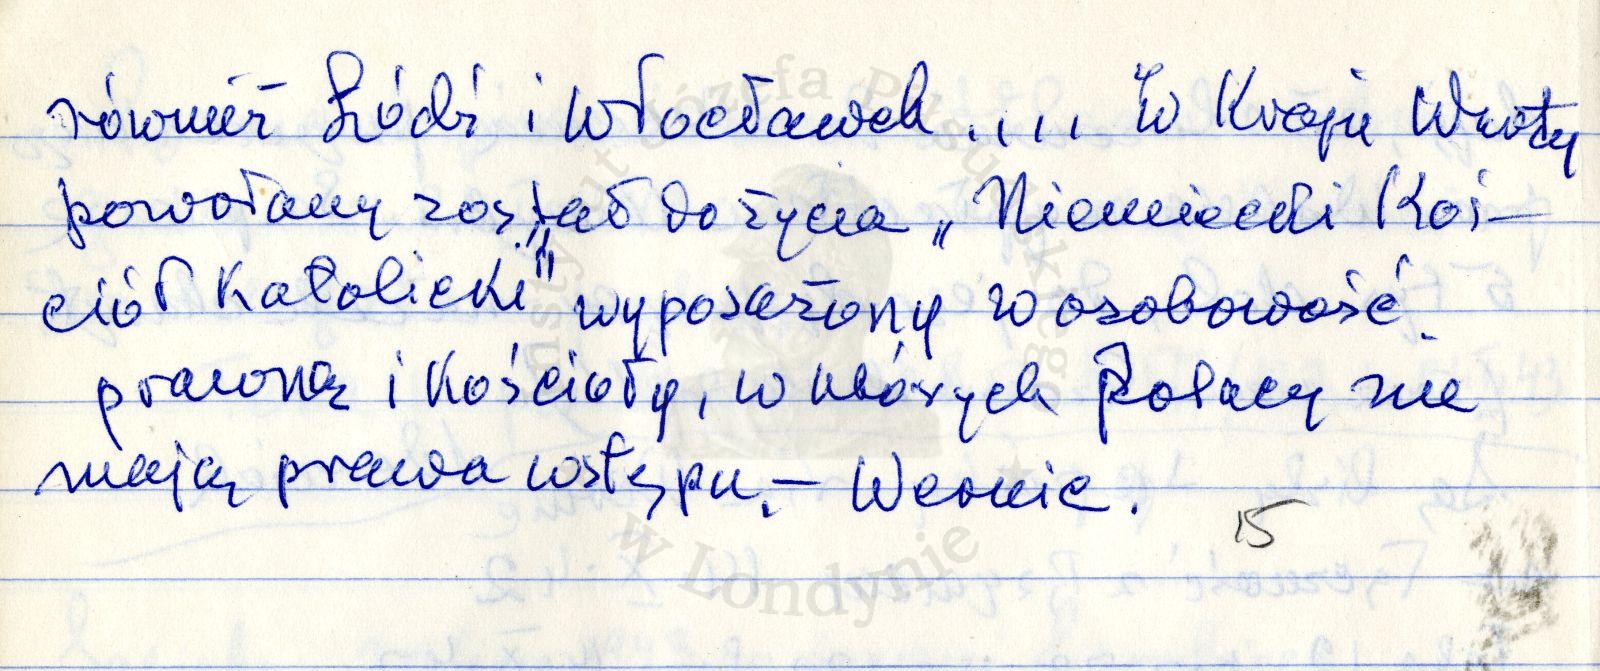 również Łódź i Włocławek.... W Kraju Warty
powołany został do życia „Niemiecki Koś-
ciół Katolicki" wyposażony w osobowość
prawną i kościoły, w których Polacy nie
mają prawa wstępu. – Weonie.
15
Instytut Józefa Piłsudskiego
w Londynie